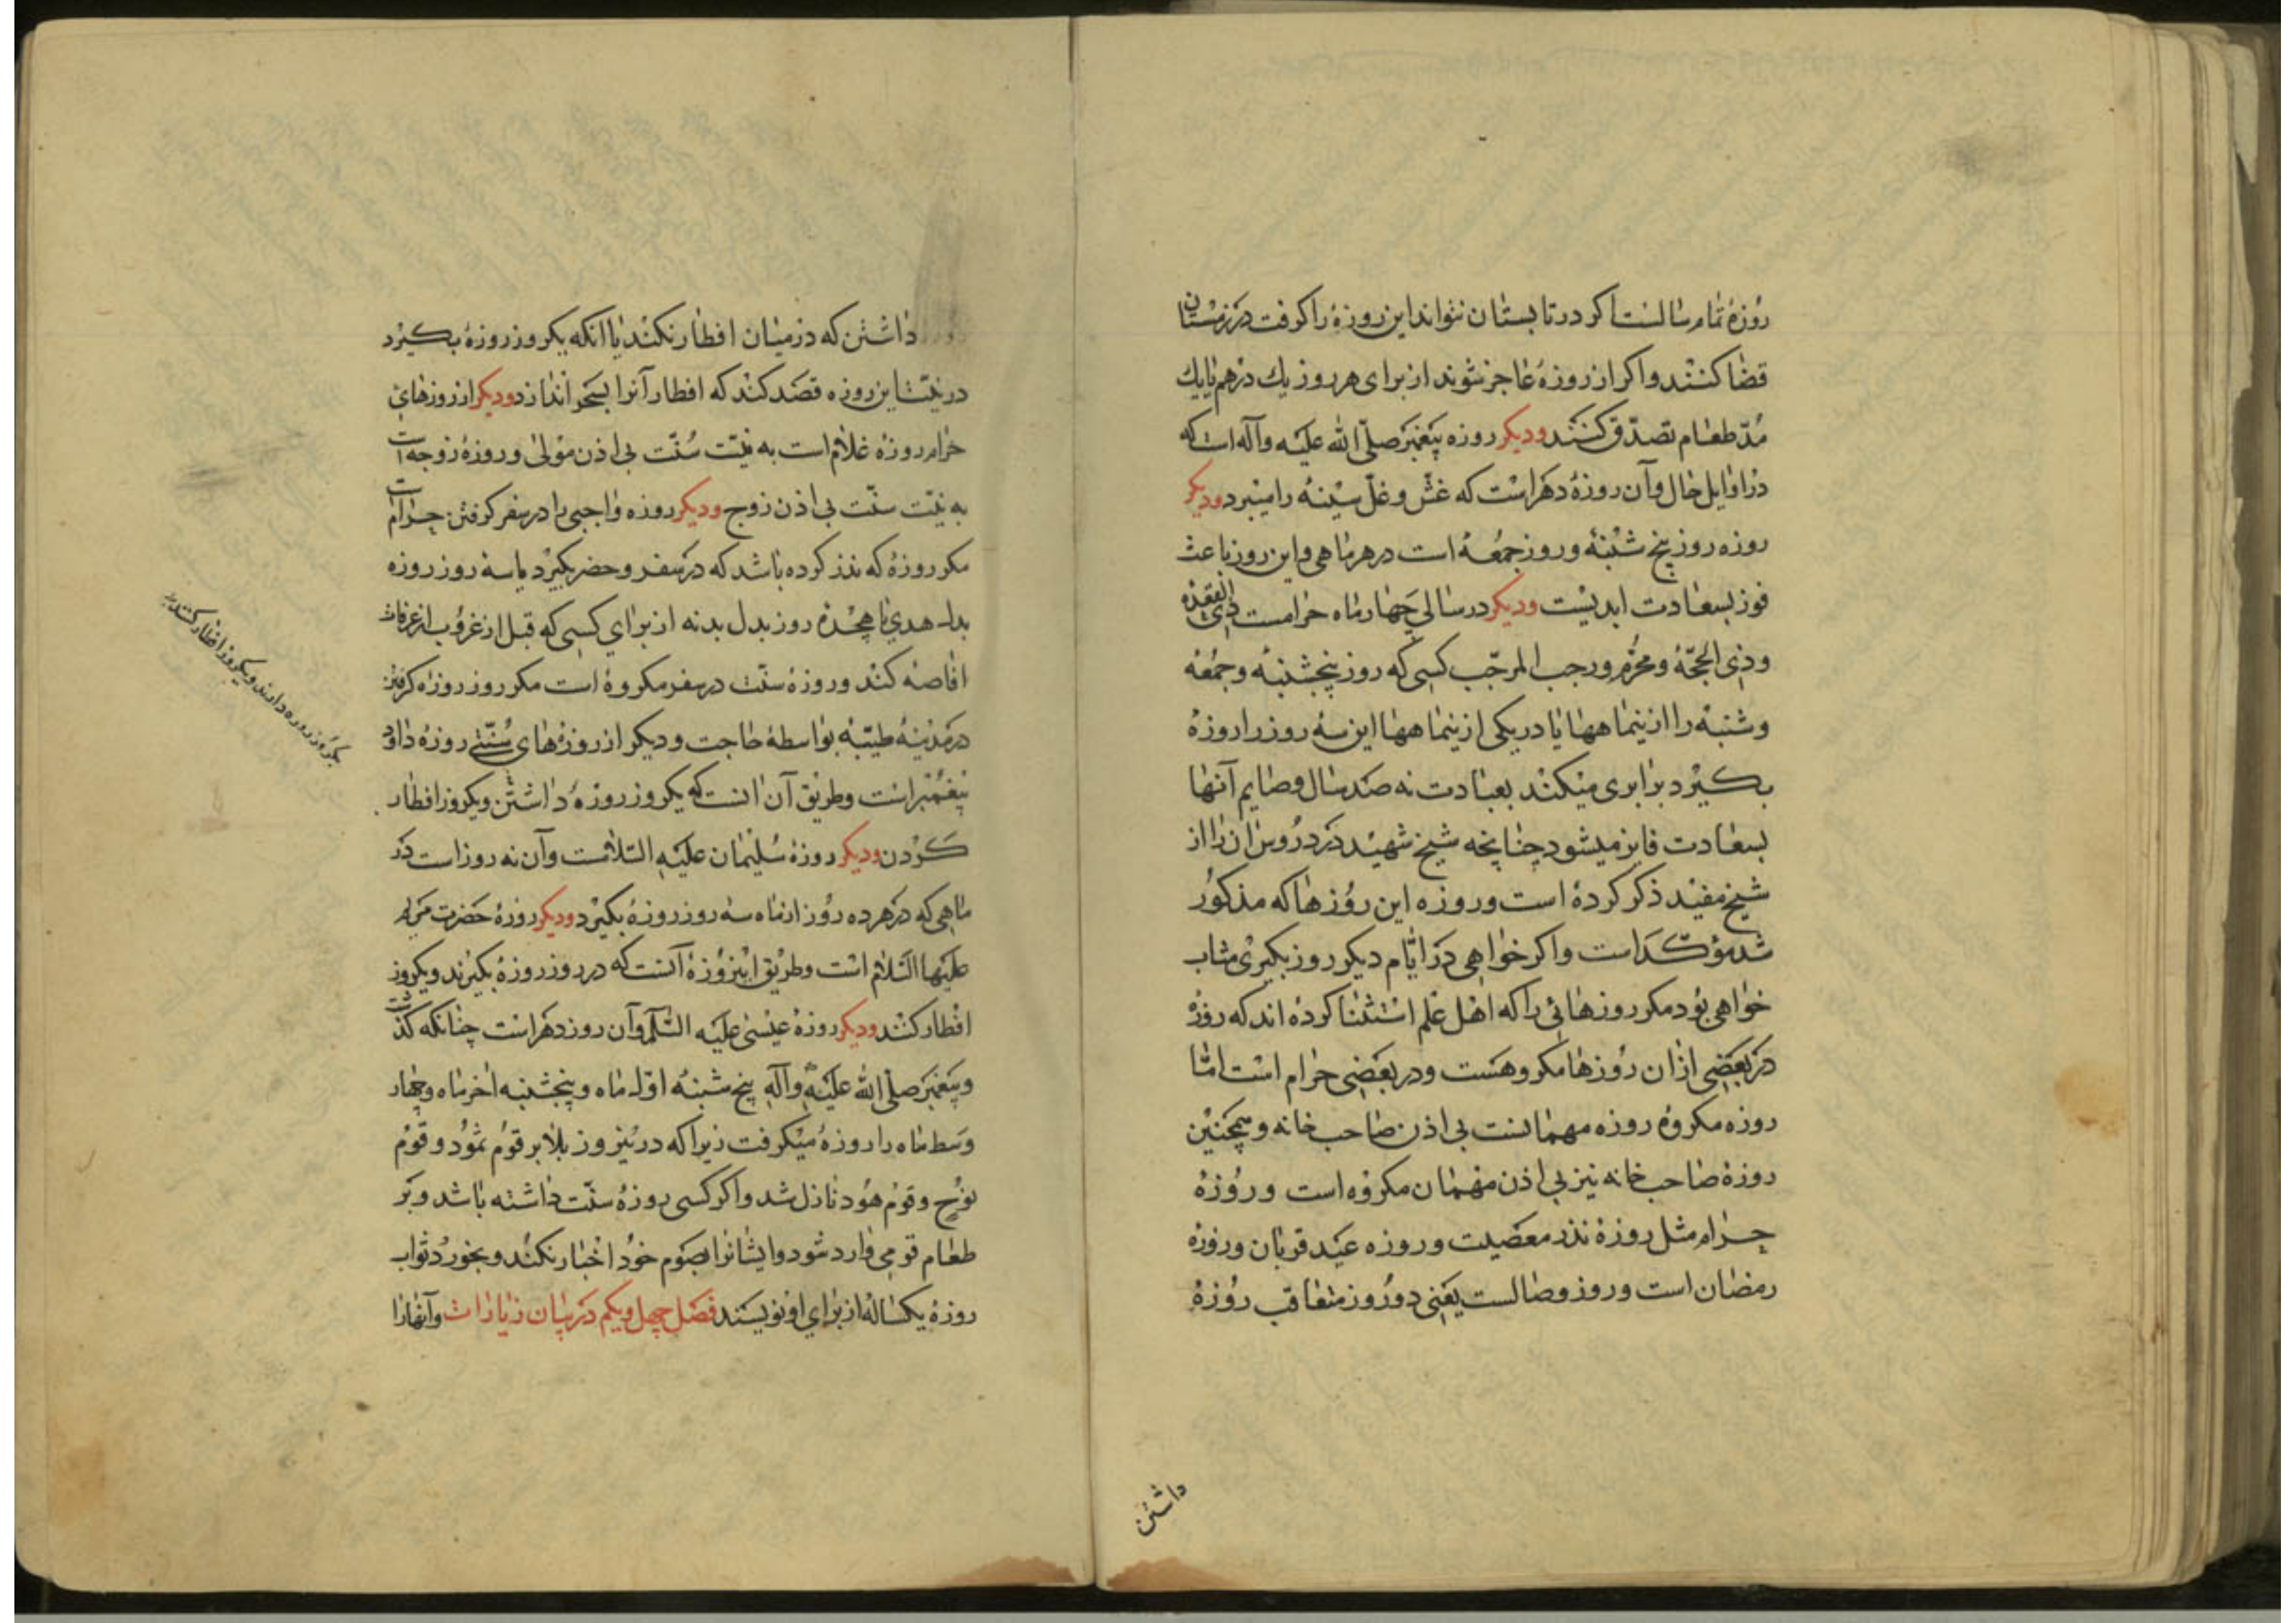 روزهٔ تمام سالست اکر در تابستان نتواند این روزه را کرفت در زمستان
قضا کنند و اکر از روزه عاجز شوند از برای هر روز یك درهم یا یك
مُدّ طعام تصدّق کنند ودیکر روزه پیغمبر صلّی الله علیه وآله است که
در اوایل حال وآن روزهٔ دهر است که غشّ و غلّ سینه را میبرد ودیکر
روزه روز پنج شنبه وروز جمعه است در هر ماهی واین روز باعث
فوز بسعادت ابدیست ودیکر در سالی چهار ماه حرامست ذی القعده
وذی الحجّه ومحرّم ورجب المرجّب کسی که روز پنجشنبه وجمُعه
وشنبه را از ینماهها یا در یکی از ینماهها این سه روز را روزه
بکیرد برابری میکند بعبادت نه صد سال وصایم آنها
بسعادت فایز میشود چنانچه شیخ شهید در دروس ان را از
شیخ مفید ذکر کرده است وروزه این روزها که مذکور
شد مؤکّد است واکر خواهی در ایّام دیکر روز بکیری مثاب
خواهی بود مکر روزهائی را که اهل علم استثنا کرده اند که روزه
در بعضی ازان روزها مکروهست ودر بعضی حرام است امّا
روزه مکروه روزه مهمانست بی اذن صاحب خانه وهمچنین
روزهٔ صاحب خانه نیز بی اذن مهمان مکروه است وروزهٔ
حرام مثل روزهٔ نذر معصیت وروزه عید قربان وروزهٔ
رمضان است وروز وصالست یعنی دو روز متعاقب روزهٔ
داشتن
داشتن که در میان افطار نکند یا انکه یکروز روزه بکیرد
در نیّت این روزه قصد کند که افطار آنرا بسحر اندازد ودیکر از روزهای
حرام روزه غلام است به نیّت سُنّت بی اذن مولی وروزهٔ زوجه است
به نیّت سنّت بی اذن زوج ودیکر روزه واجبی را در سفر کرفتن حرام است
مکر روزهٔ که نذر کرده باشد که در سفر وحضر بکیرد یا سه روز روزه
بدل هدی یا هجده روز بدل بدنه از برای کسی که قبل از غروب از عرفات
افاضه کند وروزهٔ سنّت در سفر مکروه است مکر روز روزه کرفتن
در مدینهٔ طیّبه بواسطهٔ حاجت ودیکر از روزهای سُنّتی روزهٔ داود
پیغمبر است وطریق آن انست که یکروز روزه داشتن ویکروز افطار
کردن ودیکر روزهٔ سلیمان علیه السّلامست وآن نه روز است در
ماهی که در هر ده روز از ماه سه روز روزه بکیرد ودیکر روزهٔ حضرت مریم
علیها السّلام است وطریق اینروزه آنست که در روز روزه بکیرند ویکروز
افطار کنند ودیکر روزهٔ عیسی علیه السّلم وآن روز دهر است چنانکه کذشت
وپیغمبر صلّی الله علیه وآله پنج شنبه اوّل ماه وپنجشنبه اخر ماه وچهار
وسط ماه را روزه میکرفت زیرا که در ینروز بلا بر قوم ثمود وقوم
نوح وقوم هود نازل شد واکر کسی روزهٔ سنّت داشته باشد وبر
طعام قومی وارد شود وایشانرا بصوم خود اخبار نکند وبخورد ثواب
روزهٔ یکساله از برای او نویسند فصل چهل ویکم در بیان زیارات وآنها را
یکروز روزه دارند ویکروز افطار کنند